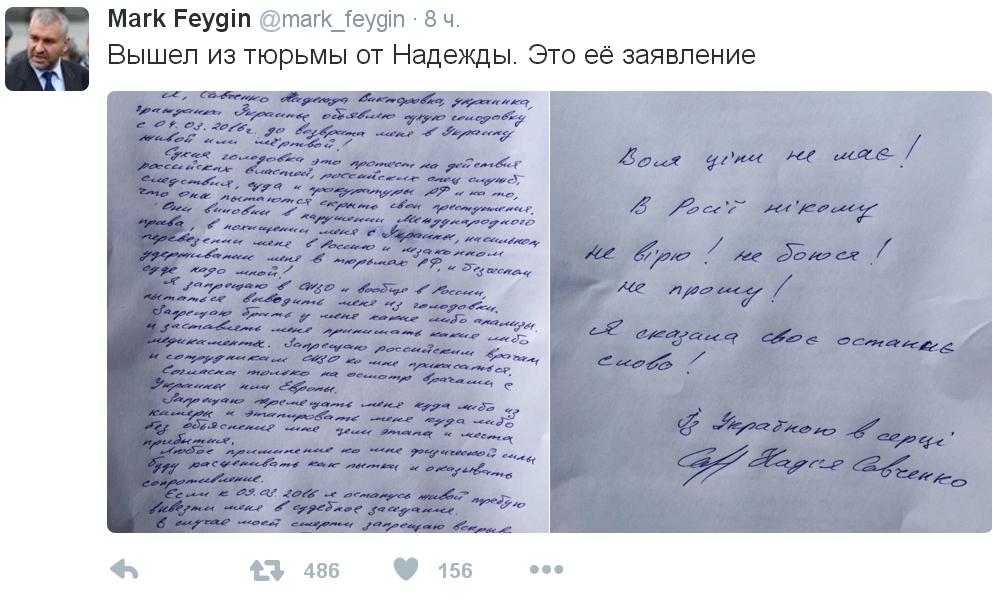 Mark Feygin @mark_feygin · 8 ч.
Вышел из тюрьмы от Надежды. Это её заявление
Я, Савченко Надежда Викторовна, украинка,
гражданка Украины объявляю сухую голодовку
с 04.03.2016г. до возврата меня в Украину
живой или мёртвой!
Сухая голодовка это протест на действия
российских властей, российских спец служб,
следствия, суда и прокуратуры РФ и на то,
что они пытаются скрыть свои преступления.
Они виновны в нарушении Международного
права, в похищении меня с Украины, насильном
перевезении меня в Россию и незаконном
удерживании меня в тюрьмах РФ, и безчесном
суде надо мной!
Я запрещаю в СИЗО и вообще в России,
пытаться выводить меня из голодовки.
Запрещаю брать у меня какие либо анализы.
и заставлять меня принимать какие либо
медикаменты. Запрещаю российским врачам
и сотрудникам СИЗО ко мне прикасаться.
Согласна только на осмотр врачами с
Украины или Европы.
Запрещаю перемещать меня куда либо из
камеры и этапировать меня куда либо
без объяснения мне цели этапа и места
прибытия.
Любое применение ко мне физической силы
буду расценивать как пытки и оказывать
сопротивление.
Если к 09.03.2016 я останусь живой требую
вивезти меня в судебное заседание.
В случае моей смерти запрещаю вскрыв
Воля ціни не має!
В Росії нікому
не вірю! не боюся!
не прошу!
Я сказала своє останнє
слово!
Із Україною в серці
Надія Савченко
486 156